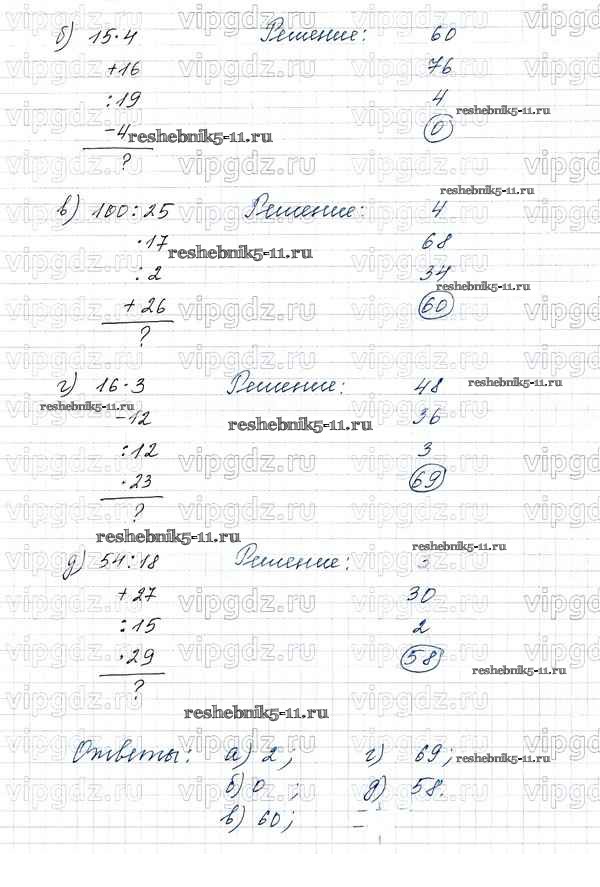 б) 15·4 Решение: 60
+16 76
:19 4
-4 0
?
в) 100:25 Решение: 4
·17 68
:2 34
+26 60
?
г) 16·3 Решение: 48
-12 36
:12 3
·23 69
?
д) 54:18 Решение: 3
+27 30
:15 2
·29 58
?
Ответы: а) 2; г) 69;
б) 0; д) 58.
в) 60;
vipgdz.ru
reshebnik5-11.ru